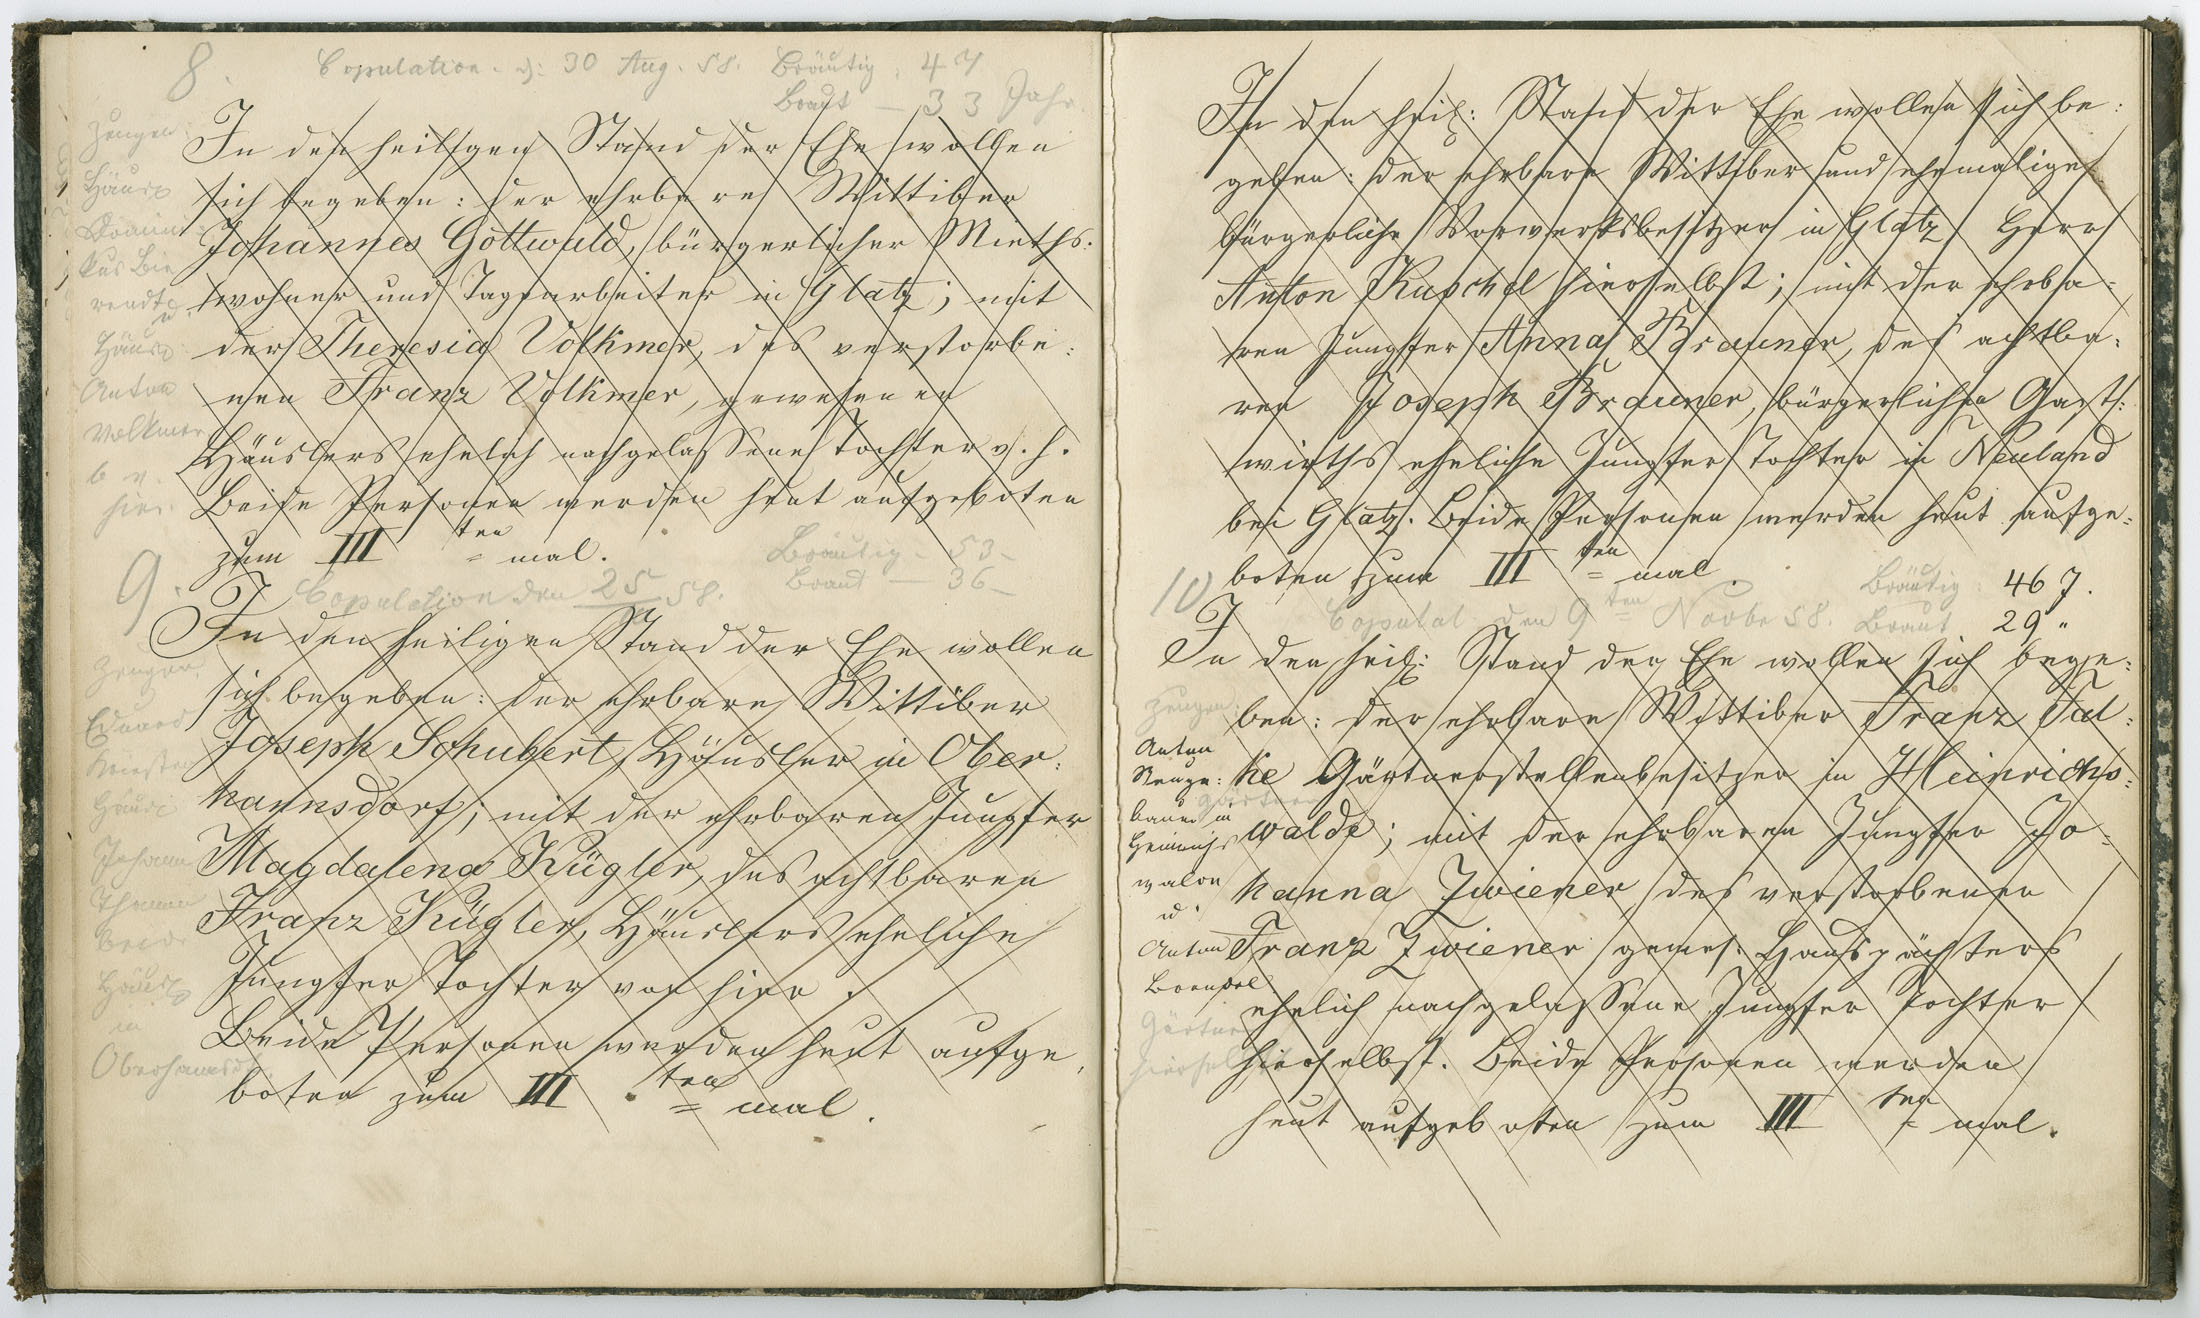 8.
Copulation d: 30 Aug. 58. Bräutig: 47
Braut — 33 Jahr.
Zeugen:
Häusr
u.
Häusr:
Anton
Volkmer
b v
hier.
In den heiligen Stand der Ehe wollen
sich begeben: der ehrbare Wittiber
Johannes Gottwald, bürgerlicher Mieths:
wohner und Tagearbeiter in Glatz; mit
der Theresia Volkmer, des verstorbe:
nen Franz Volkmer, gewesenen
Häuslers ehelich nachgelassene Tochter v. h.
Beide Personen werden heut aufgeboten
zum III ten = mal.
9.
Bräutig — 53 —
Copulation den 25 58. Braut — 36 —
Zeugen
Eduard
Häusr
Johann
beide
Häusr
in
Oberhannsd.
In den heiligen Stand der Ehe wollen
sich begeben: der ehrbare Wittiber
Joseph Schubert, Häusler in Ober:
hannsdorf; mit der ehrbaren Jungfer
Magdalena Kügler, des achtbaren
Franz Kügler, Häuslers eheliche
Jungfer Tochter von hier.
Beide Personen werden heut aufge:
boten zum III ten = mal.
In den heil: Stand der Ehe wollen sich be:
geben: der ehrbare Wittiber und ehemalige
bürgerliche Vorwerksbesitzer in Glatz Herr
Anton Kuschel hierselbst; mit der ehrba:
ren Jungfer Anna Brauner, des achtba:
ren Joseph Brauner, bürgerlichen Gast:
wirths eheliche Jungfer Tochter in Neuland
bei Glatz. Beide Personen werden heut aufge:
boten zum III ten = mal.
10
Bräutig: 46 J.
Copulat. den 9 ten Novbr 58. Braut 29 "
Zeugen:
Anton
bauer in
Heinrichs
walde
u.
Anton
Gärtner
hierselbst
In den heil: Stand der Ehe wollen sich bege:
ben: der ehrbare Wittiber Franz Tul:
ke Gärtnerstellenbesitzer in Heinrichs:
walde; mit der ehrbaren Jungfer Jo:
hanna Zwiener, des verstorbenen
Franz Zwiener gewes: Hauspächters
ehelich nachgelassene Jungfer Tochter
hierselbst. Beide Personen werden
heut aufgeboten zum III ten = mal.